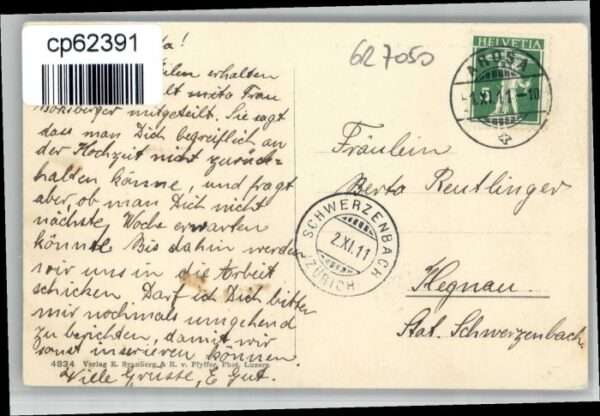 cp62391
ta!
ilen erhalten
lt mita Frau
mitgeteilt. Sie sagt
dass man Dich begreiflich an
der Hochzeit nicht zurück=
halten könne, und fragt
aber, ob man Dich nicht
nächste Woche erwarten
könnte. Bis dahin werden
wir uns in die Arbeit
schicken. Darf ich Dich bitten
mir nochmals umgehend
zu berichten, damit wir
sonst inserieren können.
Viele Grüsse, E. Gut.
4934 Verlag E. Synnberg & R. v. Pfyffer, Phot. Luzern
627050
HELVETIA
5
AROSA
1.XI. 10
Fräulein
Berta Reutlinger
Hegnau.
Stat. Schwerzenbach.
SCHWERZENBACH
2.XI.11
(ZÜRICH)